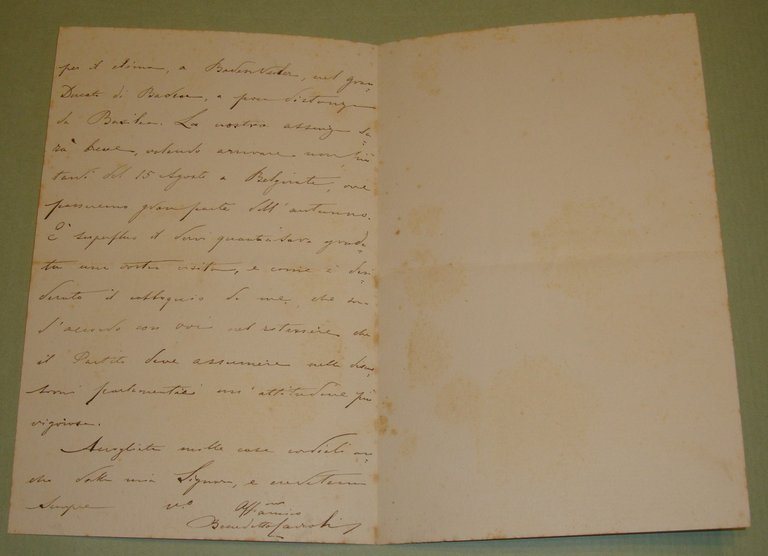 per il clima, a Badenweiler, nel gran
Ducato di Baden, a poca distanza
da Basilea. La nostra assenza sa=
rà breve, volendo arrivare non più
tardi del 15 Agosto a Belgirate, ove
passeremo gran parte dell'autunno.
È superfluo il dirvi quanto sarà gradi=
ta una vostra visita, e come è desi=
derato il colloquio da me, che sono
d'accordo con voi nel ritenere che
il Partito deve assumere nelle discus=
sioni parlamentari un'attitudine più
vigorosa.
Accogliete molte cose cordiali an=
che dalla mia Signora, e credetemi
sempre vo
Aff.mo amico
Benedetto Cairoli